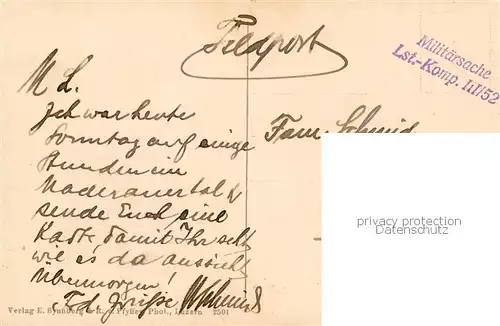 Feldpost
Militärsache
Lst.-Komp. III/52
M L.
Ich war heute
Sonntag auf einige
Stunden im
Maderanertal &
sende Euch eine
Karte damit Ihr seht
wie es da aussieht
Übermorgen!
Fam. Schmid
privacy protection
Verlag E. Synnberg & R. v. Pfyffer, Phot., Luzern 2501
Grüsse WSchmid